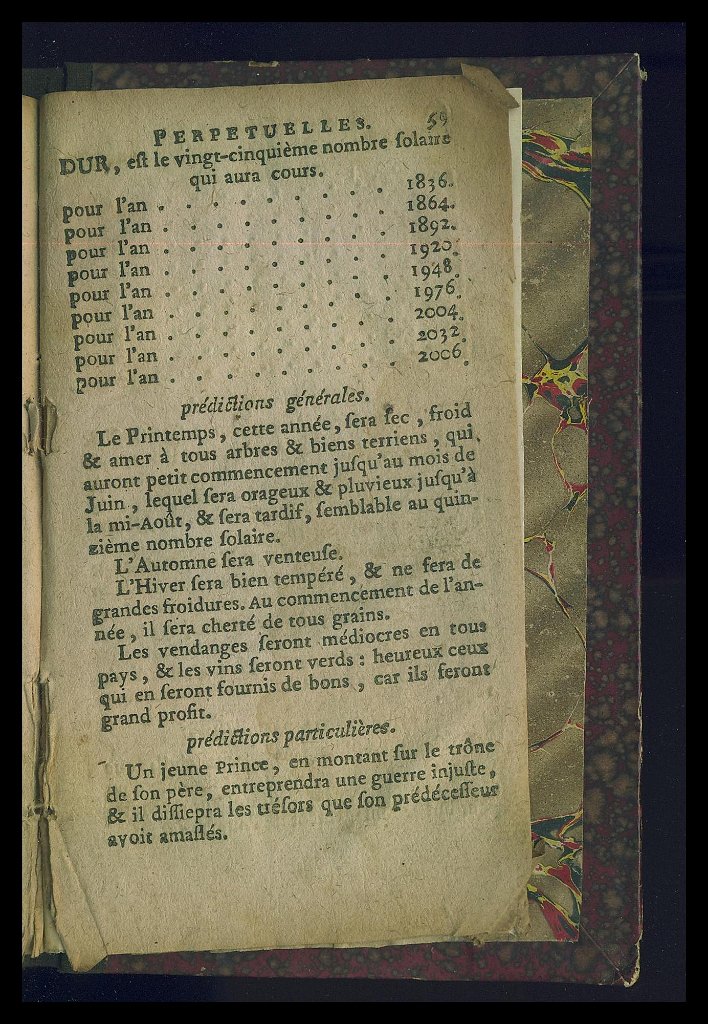 PERPETUELLES. 59
DUR, eſt le vingt-cinquième nombre ſolaire
qui aura cours.
pour l'an . . . . . . . . . 1836.
pour l'an . . . . . . . . . 1864.
pour l'an . . . . . . . . . 1892.
pour l'an . . . . . . . . . 1920.
pour l'an . . . . . . . . . 1948.
pour l'an . . . . . . . . . 1976.
pour l'an . . . . . . . . . 2004.
pour l'an . . . . . . . . . 2032.
pour l'an . . . . . . . . . 2006.
prédictions générales.
Le Printemps, cette année, ſera ſec, froid
& amer à tous arbres & biens terriens, qui
auront petit commencement juſqu'au mois de
Juin, lequel ſera orageux & pluvieux juſqu'à
la mi-Août, & ſera tardif, ſemblable au quin-
zième nombre ſolaire.
L'Automne ſera venteuſe.
L'Hiver ſera bien tempéré, & ne ſera de
grandes froidures. Au commencement de l'an-
née, il ſera cherté de tous grains.
Les vendanges ſeront médiocres en tous
pays, & les vins ſeront verds : heureux ceux
qui en ſeront fournis de bons, car ils ſeront
grand profit.
prédictions particulières.
Un jeune Prince, en montant ſur le trône
de ſon père, entreprendra une guerre injuſte,
& il diſſiepra les tréſors que ſon prédéceſſeur
avoit amaſſés.